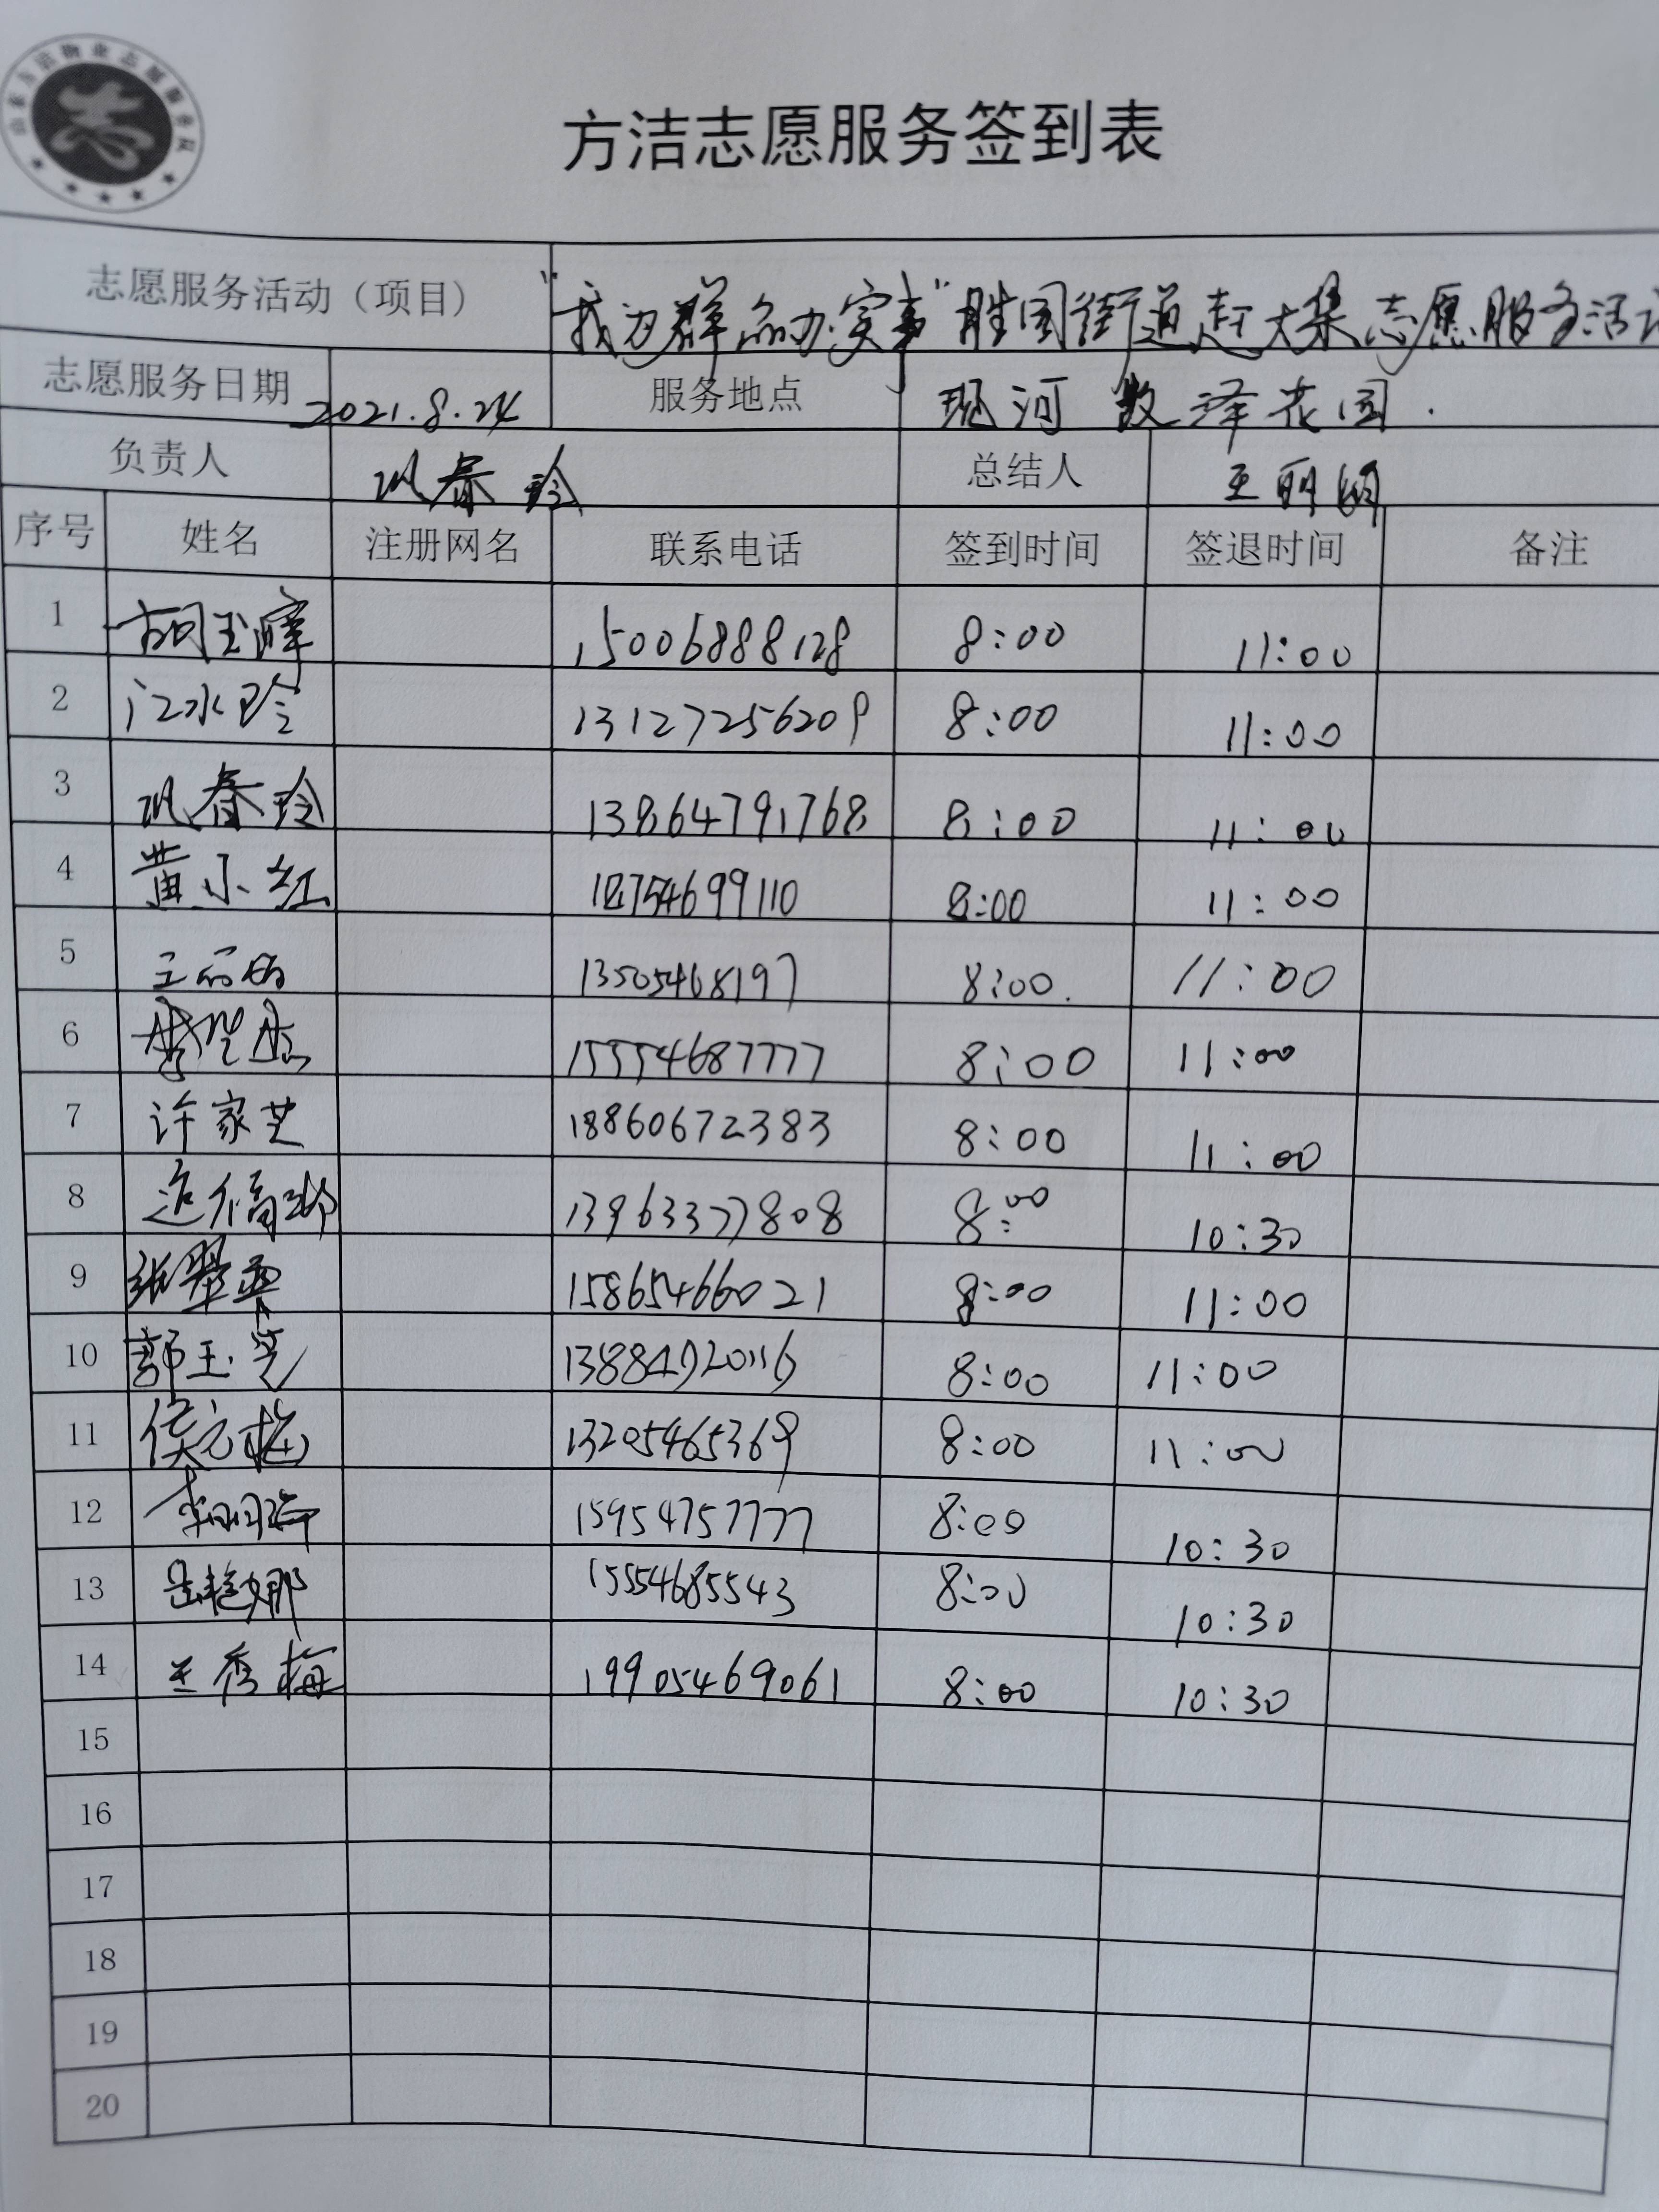 山东方洁物业志愿服务队
志
方洁志愿服务签到表
志愿服务活动（项目） “我为群众办实事”胜园街道赶大集志愿服务活
志愿服务日期 2021.8.24 服务地点 现河 花园.
负责人 巩春玲 总结人 王丽娟
序号 姓名 注册网名 联系电话 签到时间 签退时间 备注
1 胡玉 15006888128 8:00 11:00
2 江水玲 13127256209 8:00 11:00
3 巩春玲 13864791768 8:00 11:00
4 黄小红 18754699110 8:00 11:00
5 王丽娟 13505468197 8:00. 11:00
6 15554687777 8:00 11:00
7 许家芝 18860672383 8:00 11:00
8 13963377808 8:00 10:30
9 张翠 15865466021 8:00 11:00
10 郭玉 8:00 11:00
11 侯元梅 13205465369 8:00 11:00
12 李 15954757777 8:00 10:30
13 岳艳娜 15554685543 8:00 10:30
14 王秀梅 19905469061 8:00 10:30
15
16
17
18
19
20